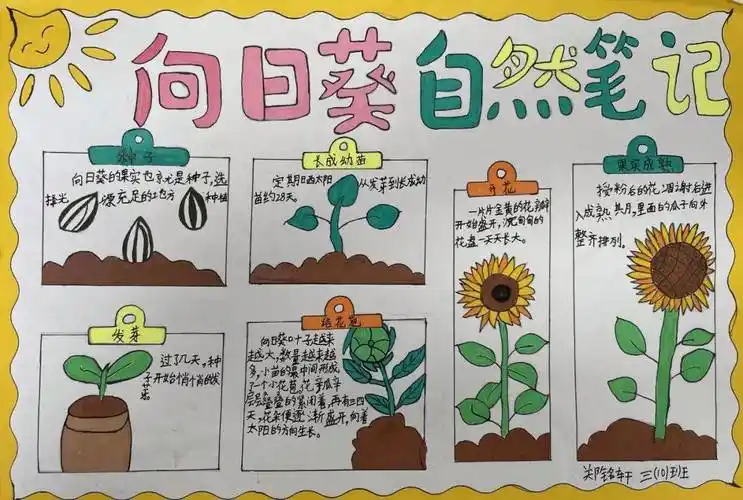 向日葵自然笔记
种子
向日葵的果实也就是种子,选
择光 漫充足的土地方 种植
长成幼苗
定期晒太阳 从发芽到长成幼
苗约28天。
发芽
过了几天,种
子开始悄悄的发
芽
培花苞
向日葵叶子越来
越大,数量越来越
多,小苗的巢中间形成
了一个小花苞。花
层层叠叠的紧闭着,再有三四
天,花朵便逐渐盛开,向着
太阳的方向生长。
开花
一片片金黄的花瓣
开始盛开,沉甸甸的
花盘一天天长大。
果实成熟
授粉后的花凋谢后进
入成熟其月,里面的瓜子向外
整齐排列。
三(10)班